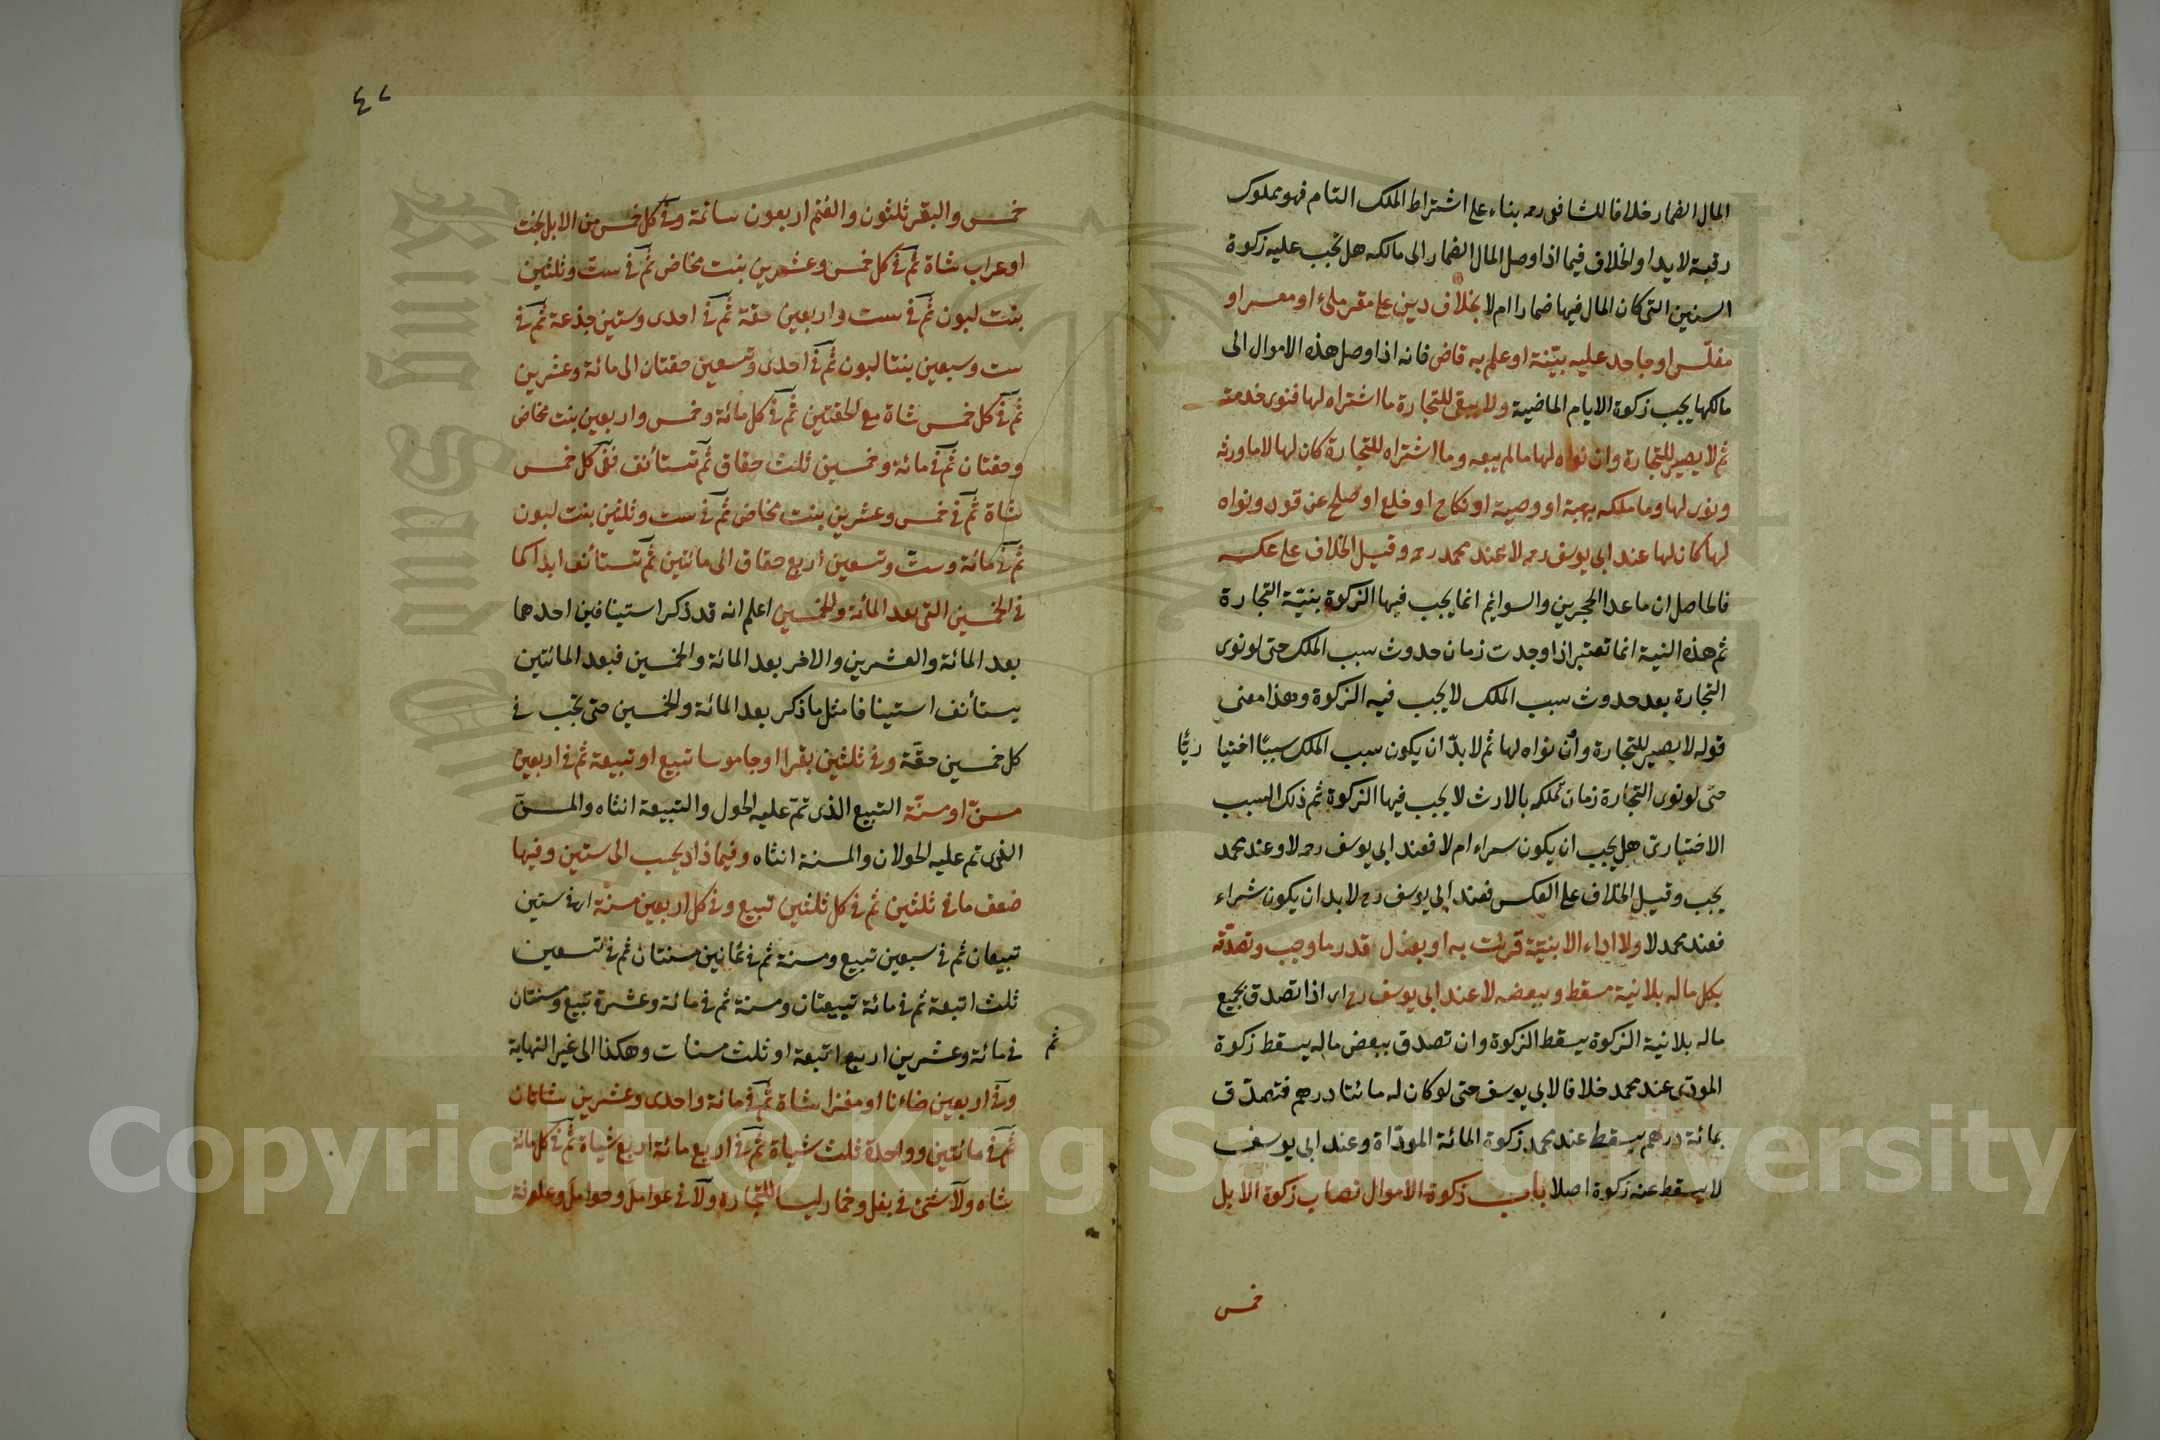 المال الضمار خلافا للشافعى رحمه بناء على اشتراط الملك التام فهو مملوك
رقبة لا يدا والخلاف فيما اذا وصل المال الضمار الى مالكه هل تجب عليه زكوة
السنين التى كان المال فيها ضمارا ام لا بخلاف دين على مقر ملىء او معسر او
مفلّس او جاحد عليه بيّنة او علم به قاض فانه اذا وصل هذه الاموال الى
مالكها يجب زكوة الايام الماضية ولا يبقى للتجارة ما اشتراه لها فنوى خدمته
ثم لا يصير للتجارة وان نواه لها مالم يبعه وما اشتراه للتجارة كان لها لا ما ورثه
ونوى لها وما ملكه بهبة او وصية او نكاح او خلع او صلح عن قود ونواه
لها كان لها عند ابى يوسف رحمه لا عند محمد رحمه وقيل الخلاف على عكسه
فالحاصل ان ما عدا الحجرين والسوايم انما يجب فيها الزكوة بنيّة التجارة
ثم هذه النية انما تعتبر اذا وجدت زمان حدوث سبب الملك حتى لو نوى
التجارة بعد حدوث سبب الملك لا يجب فيه الزكوة وهذا معنى
قوله لا يصير للتجارة وان نواه لها ثم لا بدّ ان يكون سبب الملك سببًا اختيا ريًّا
حتى لو نوى التجارة زمان تملكه بالارث لا يجب فيها الزكوة ثم ذلك السبب
الاختيارىّ هل يجب ان يكون سراء ام لا فعند ابى يوسف رحمه لا وعند محمد
يجب وقيل الخلاف على العكس فعند ابى يوسف رح لا بد ان يكون شراء
فعند محمد لا ولا اداء الا بنيّة قرنت به او بعزل قدر ما وجب وتصدّقه
بكل ماله بلا نية مسقط وببعضه لا عند ابى يوسف رح اى اذا تصدق بجميع
ماله بلا نية الزكوة يسقط الزكوة وان تصدق ببعض ماله يسقط زكوة
المودّى عند محمد خلافا لابى يوسف حتى لو كان له مائتا درهم فتصدّق
بمائة درهم يسقط عند محمد زكوة المائة المودّاة وعند ابى يوسف
لا يسقط عنه زكوة اصلا باب زكوة الاموال نصاب زكوة الابل
خمس
٤٧
خمس والبقر ثلثون والغنم اربعون سائمة وفى كل خمس من الابل بخت
او عراب شاة ثم فى كل خمس وعشرين بنت مخاض ثم فى ست وثلثين
بنت لبون ثم فى ست واربعين حقة ثم فى احدى وستين جذعة ثم فى
ست وسبعين بنتا لبون ثم فى احدى وتسعين حقتان الى مائة وعشرين
ثم فى كل خمس شاة مع الحقتين ثم فى كل مائة وخمس واربعين بنت مخاض
وحقتان ثم فى مائة وخمسين ثلث حقاق ثم تستأنف ففى كل خمس
شاة ثم فى خمس وعشرين بنت مخاض ثم فى ست وثلثين بنت لبون
ثم فى مائة وست وتسعين اربع حقاق الى مائتين ثم تستأنف ابدا كما
فى الخمسين التى بعد المائة والخمسين اعلم انه قد ذكر استينافين احدهما
بعد المائة والعشرين والاخر بعد المائة والخمسين فبعد المائتين
يستأنف استينافا مثل ما ذكر بعد المائة والخمسين حتى تجب فى
كل خمسين حقّة وفى ثلثين بقرا او جاموسا تبيع او تبيعة ثم فى اربعين
مسنّ او مسنّة التبيع الذى تمّ عليه الحول والتبيعة انثاه والمسنّ
الذى تم عليه الحولان والمسنة انثاه وفيما زاد يحسب الى ستين وفيها
ضعف ما فى ثلثين ثم فى كل ثلثين تبيع وفى كل اربعين مسنة اى فى ستين
تبيعان ثم فى سبعين تبيع ومسنة ثم فى ثمانين مسنتان ثم فى تسعين
ثلث اتبعة ثم فى مائة تبيعتان ومسنة ثم فى مائة وعشرة تبيع ومسنتان
ثم فى مائة وعشرين اربع اتبعة او ثلث مسنات وهكذا الى غير النهاية
وفى اربعين ضاءنا او معزا شاة ثم فى مائة واحدى وعشرين شاتان
ثم فى مائتين وواحدة ثلث شياة ثم فى اربع مائة اربع شياة ثم فى كل مائة
شاة ولا شئ فى بغل وحمار ليسا للتجارة ولا فى عوامل وحوامل وعلوفة
Copyright © King Saud University